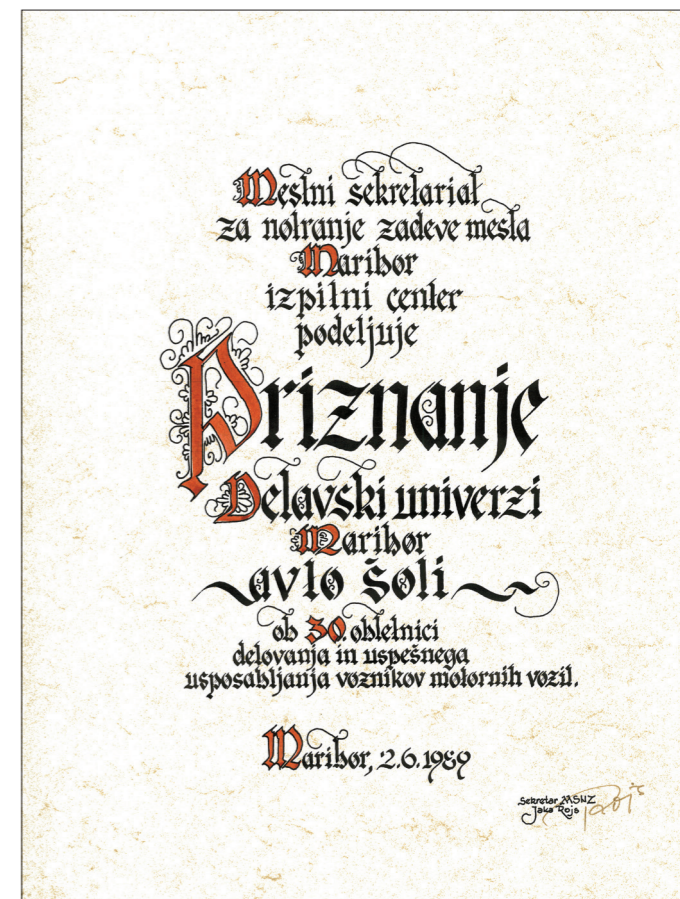 Mestni sekretariat
za notranje zadeve mesta
Maribor
izpitni center
podeljuje
Priznanje
Delavski univerzi
Maribor
avto šoli
ob 30. obletnici
delovanja in uspešnega
usposabljanja voznikov motornih vozil.
Maribor, 2.6.1989
Sekretar MSNZ
Jaka Rojs